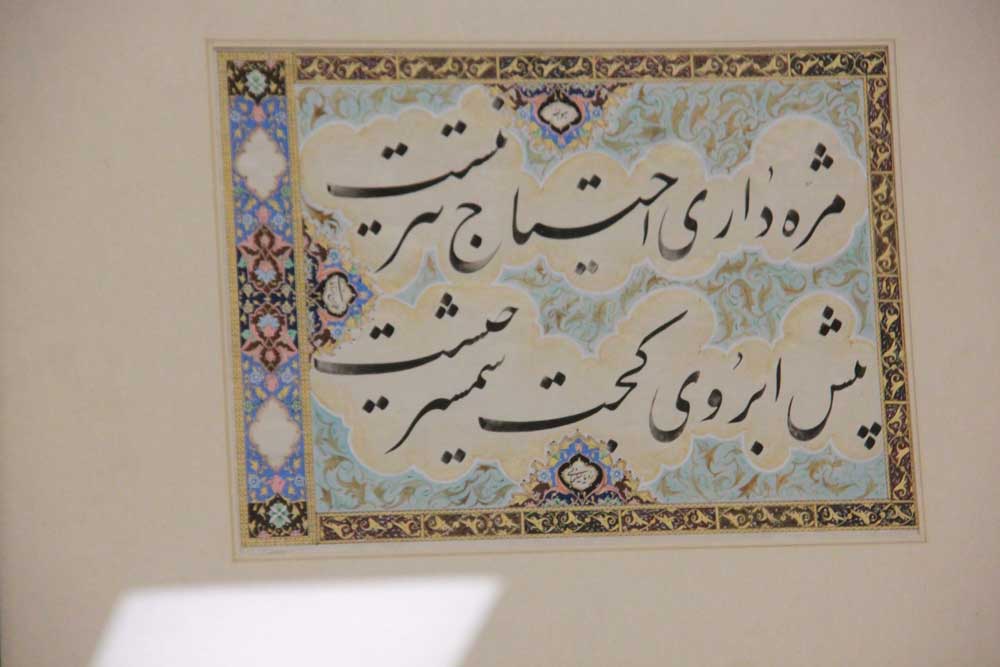 مژه داری احتیاج تیر نیست
پیش ابروی کجت شمشیر چیست